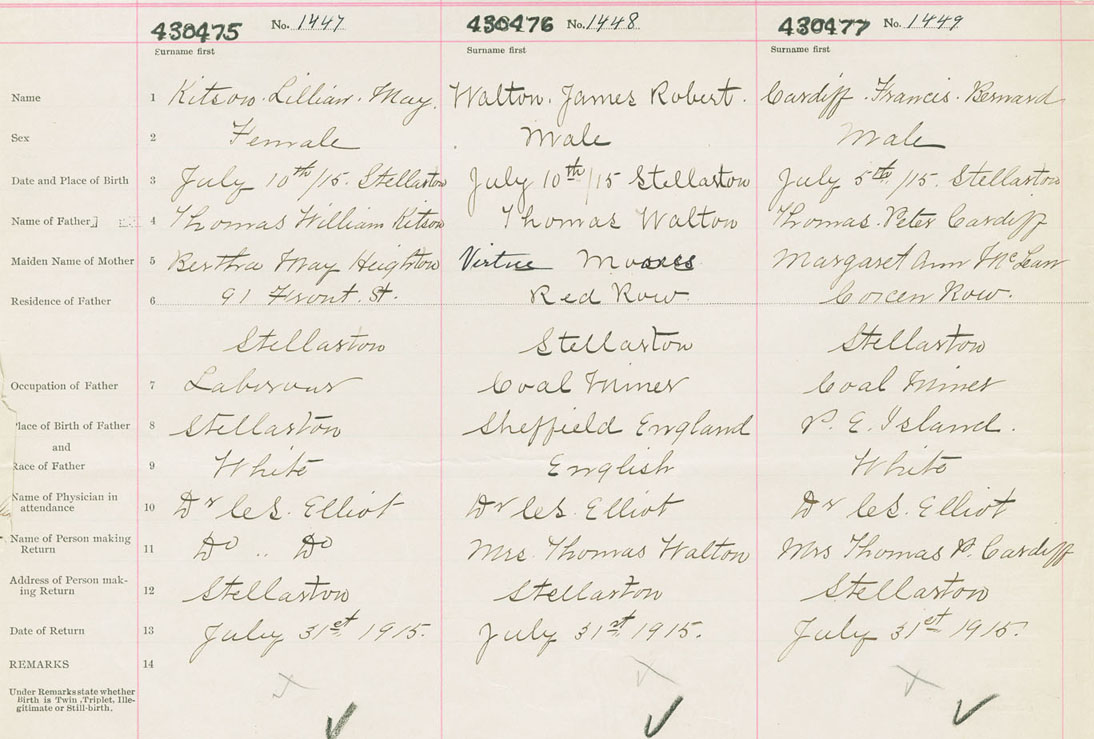 430475 No. 1447 430476 No. 1448 430477 No. 1449
Surname first Surname first Surname first
Name 1 Kitson. Lillian. May. Walton. James Robert. Cardiff. Francis. Bernard
Sex 2 Female Male Male
Date and Place of Birth 3 July 10th/15. Stellarton July 10th/15 Stellarton July 5th/15. Stellarton
Name of Father 4 Thomas William Kitson Thomas Walton Thomas. Peter Cardiff
Maiden Name of Mother 5 Bertha May Heighton Virtue Margaret Ann McLean
Residence of Father 6 91 Front. St. Red Row. Row.
Stellarton Stellarton Stellarton
Occupation of Father 7 Labourer Coal Miner Coal Miner
Place of Birth of Father 8 Stellarton Sheffield England P. E. Island.
and
Race of Father 9 White English White
Name of Physician in
attendance 10 Dr Elliot Dr Elliot Dr Elliot
Name of Person making
Return 11 Do .. Do Mrs. Thomas Walton Mrs Thomas P. Cardiff
Address of Person mak-
ing Return 12 Stellarton Stellarton Stellarton
Date of Return 13 July 31st 1915. July 31st 1915. July 31st 1915.
REMARKS 14
Under Remarks state whether
Birth is Twin, Triplet, Ille-
gitimate or Still-birth.